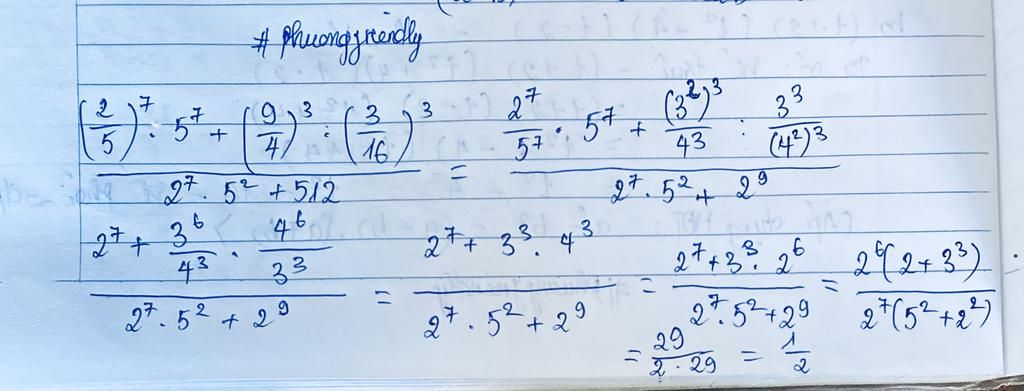 # phuongfriendly
((2/5)^7 · 5^7 + (9/4)^3 : (3/16)^3) / (2^7 · 5^2 + 512) = (2^7/5^7 · 5^7 + (3^2)^3/4^3 : 3^3/(4^2)^3) / (2^7 · 5^2 + 2^9)
(2^7 + 3^6/4^3 · 4^6/3^3) / (2^7 · 5^2 + 2^9) = (2^7 + 3^3 · 4^3) / (2^7 · 5^2 + 2^9) = (2^7 + 3^3 · 2^6) / (2^7 · 5^2 + 2^9) = 2^6(2 + 3^3) / 2^7(5^2 + 2^2)
= 29 / (2 · 29) = 1/2